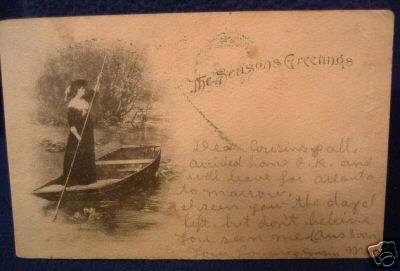 The Seasons Greetings
Dear Cousins & all,
arrived home O.K. and
will leave for Atlanta
to marrow.
I seen you the day I
left, but don't beleive
you seen me (Ans soon
Your loving Cousin M
ebY